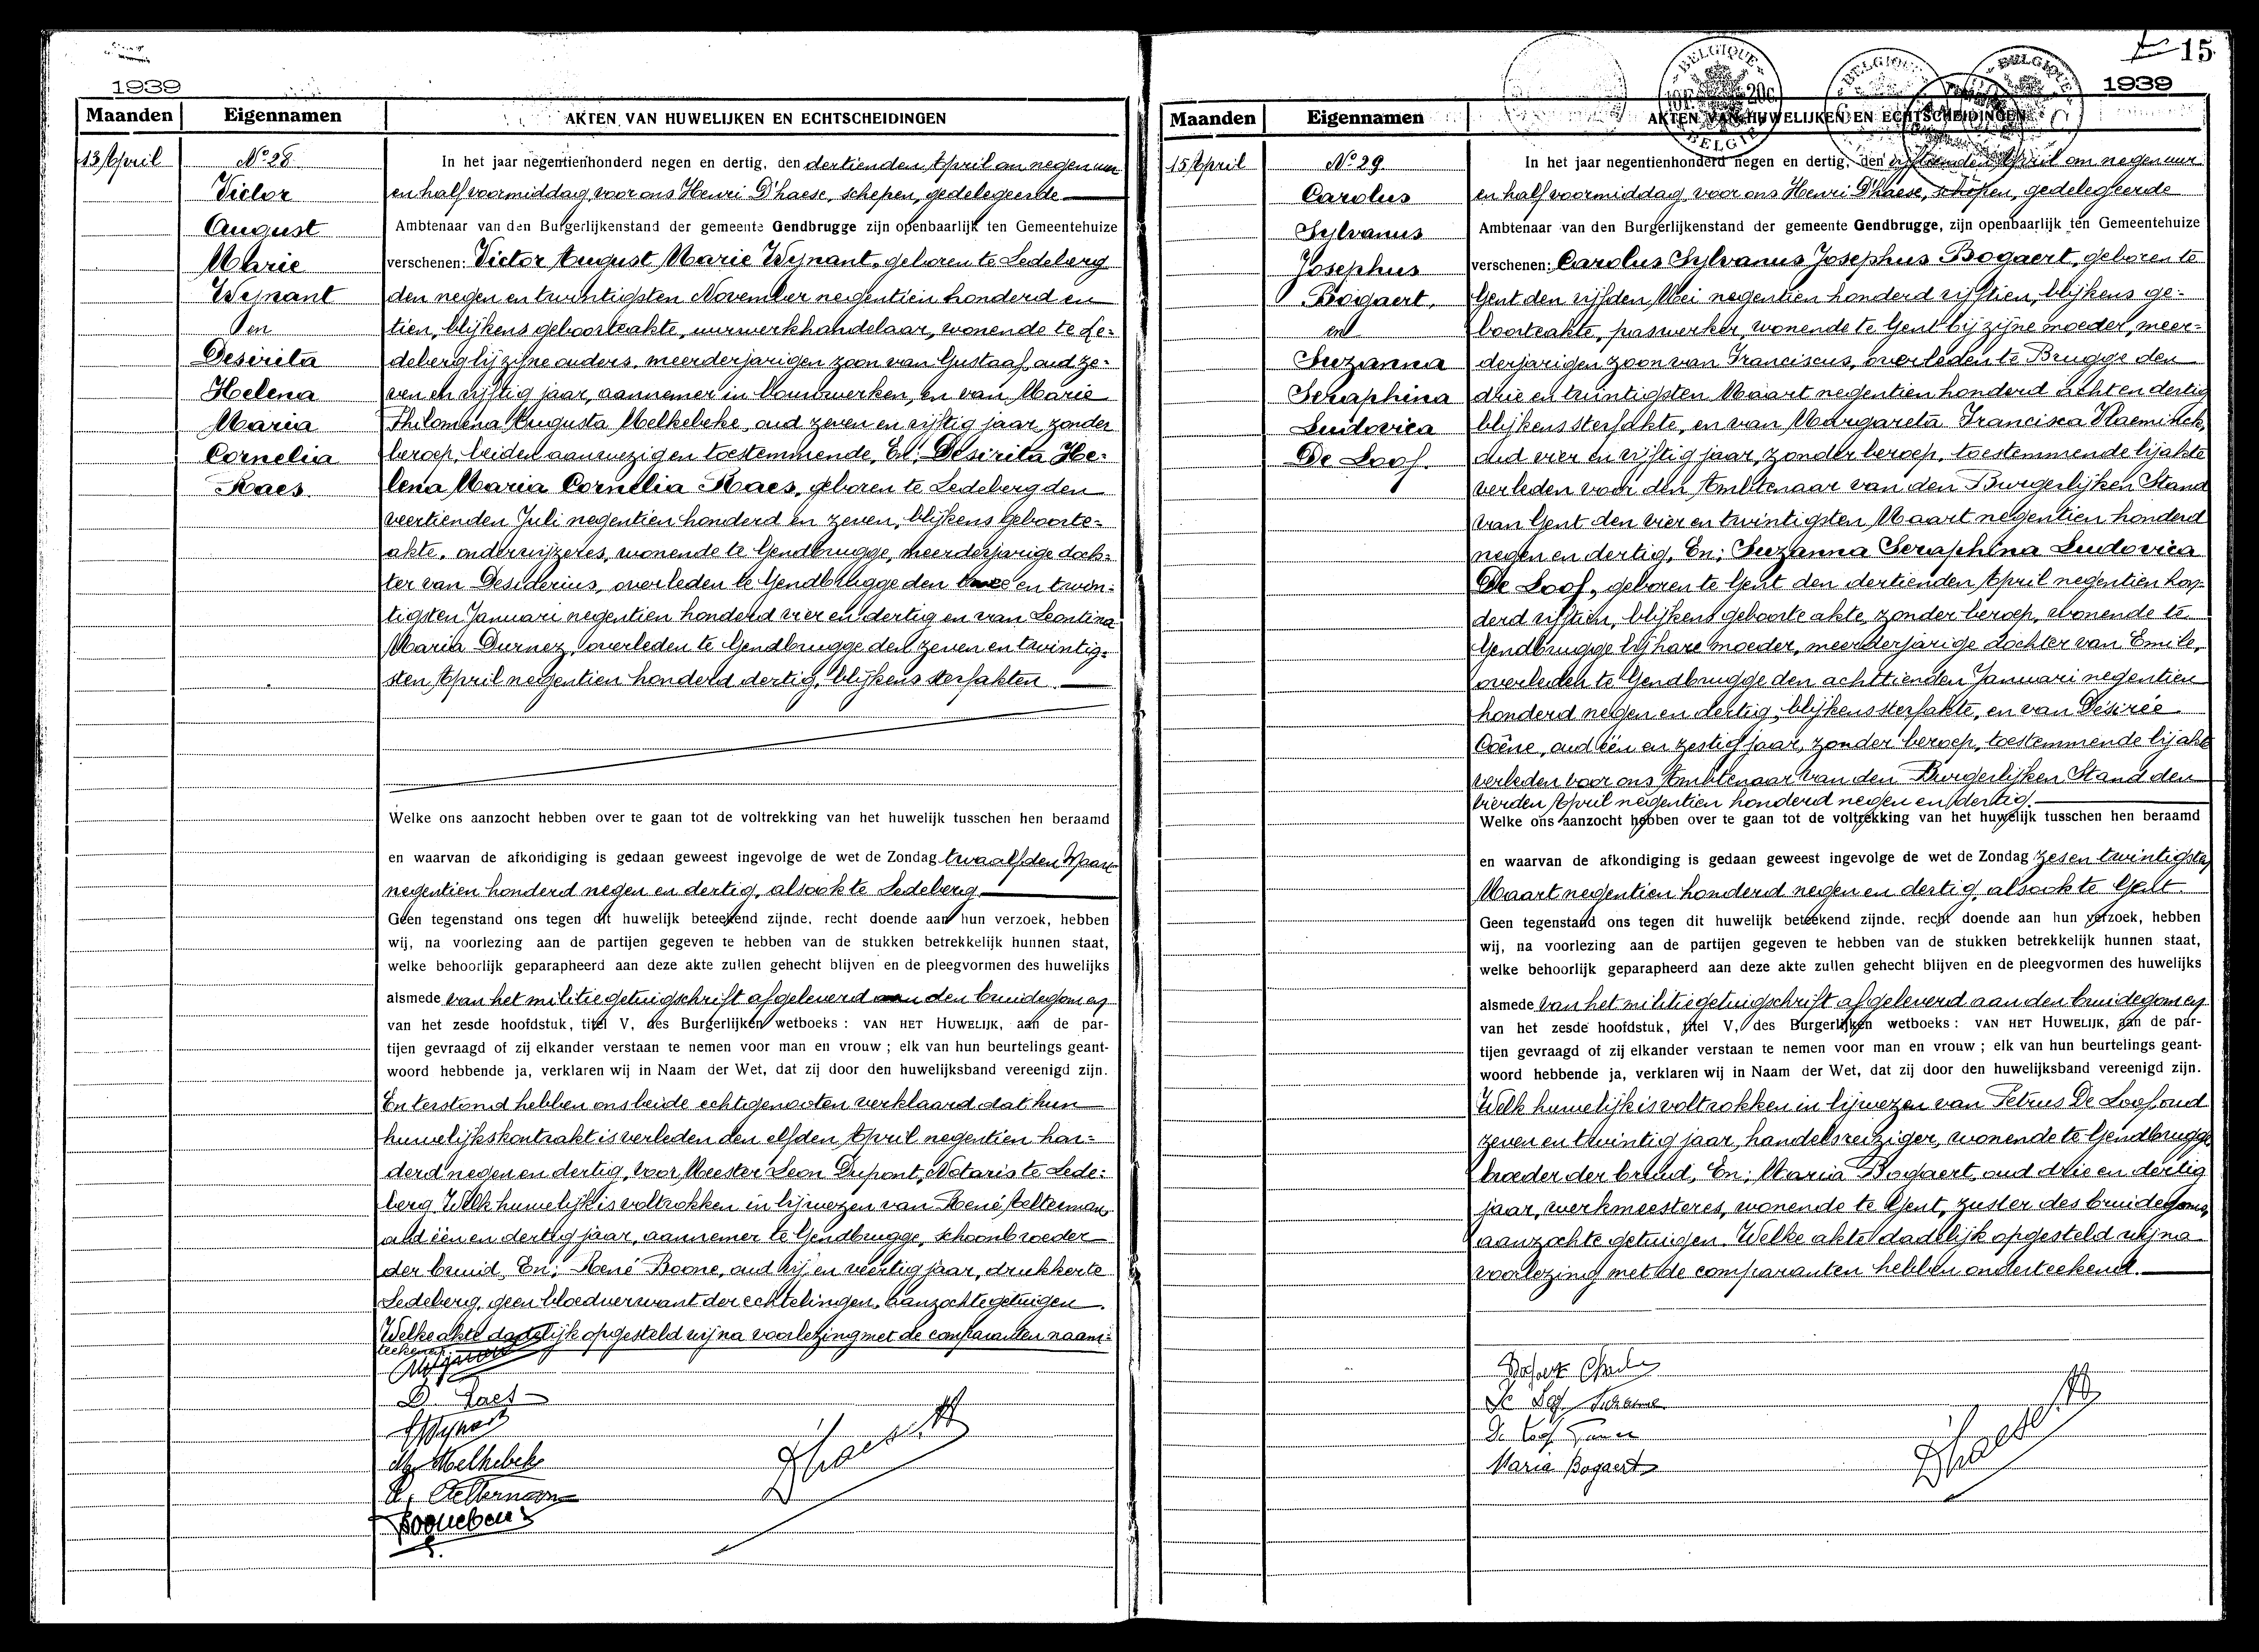 1939
Maanden Eigennamen AKTEN VAN HUWELIJKEN EN ECHTSCHEIDINGEN
13 April
No 28
Victor
August
Marie
Wijnant
en
Desirita
Helena
Maria
Cornelia
Raes
In het jaar negentienhonderd negen en dertig, den dertienden April om negen uur
en half voormiddag voor ons Henri D'haese, schepen, gedelegeerde
Ambtenaar van den Burgerlijkenstand der gemeente Gendbrugge zijn openbaarlijk ten Gemeentehuize
verschenen: Victor August Marie Wijnant, geboren te Ledeberg
den negen en twintigsten November negentien honderd en
tien, blijkens geboorteakte, uurwerkhandelaar, wonende te Le-
deberg bij zijne ouders, meerderjarigen zoon van Gustaaf, oud ze-
ven en vijftig jaar, aannemer in bouwwerken, en van Marie
Philomena Augusta Melkebeke, oud zeven en vijftig jaar, zonder
beroep, beiden aanwezig en toestemmende, En: Desirita He-
lena Maria Cornelia Raes, geboren te Ledeberg den
veertienden Juli negentien honderd en zeven, blijkens geboorte-
akte, onderwijzeres, wonende te Gendbrugge, meerderjarige doch-
ter van Desiderius, overleden te Gendbrugge den twee en twin-
tigsten Januari negentien honderd vier en dertig en van Leontina
Maria Durnez, overleden te Gendbrugge den zeven en twintig-
sten April negentien honderd dertig, blijkens sterfakten
Welke ons aanzocht hebben over te gaan tot de voltrekking van het huwelijk tusschen hen beraamd
en waarvan de afkondiging is gedaan geweest ingevolge de wet de Zondag twaalfden Maart
negentien honderd negen en dertig, alsook te Ledeberg
Geen tegenstand ons tegen dit huwelijk beteekend zijnde, recht doende aan hun verzoek, hebben
wij, na voorlezing aan de partijen gegeven te hebben van de stukken betrekkelijk hunnen staat,
welke behoorlijk geparapheerd aan deze akte zullen gehecht blijven en de pleegvormen des huwelijks
alsmede van het militiegetuigschrift afgeleverd aan den bruidegom en
van het zesde hoofdstuk, titel V, des Burgerlijken wetboeks: VAN HET HUWELIJK, aan de par-
tijen gevraagd of zij elkander verstaan te nemen voor man en vrouw; elk van hun beurtelings geant-
woord hebbende ja, verklaren wij in Naam der Wet, dat zij door den huwelijksband vereenigd zijn.
En terstond hebben ons beide echtgenooten verklaard dat hun
huwelijkskontrakt is verleden den elfden April negentien hon-
derd negen en dertig, voor Meester Leon Dupont, Notaris te Lede-
berg. Welk huwelijk is voltrokken in bijwezen van René Aelterman,
oud één en dertig jaar, aannemer te Gendbrugge, schoonbroeder
der bruid, En: René Boone, oud vijf en veertig jaar, drukker te
Ledeberg, geen bloedverwant der echtelingen, aanzochte getuigen.
Welke akte dadelijk opgesteld wij na voorlezing met de comparanten naam-
teekenen
D. Raes
M. Melkebeke
R. Aelterman
Dhaese H
15
1939
Maanden Eigennamen AKTEN VAN HUWELIJKEN EN ECHTSCHEIDINGEN
BELGIQUE BELGIQUE BELGIQUE
BELGIE
15 April
No 29
Carolus
Sylvanus
Josephus
Bogaert,
en
Suzanna
Seraphina
Ludovica
De Loof.
In het jaar negentienhonderd negen en dertig, den vijftienden April om negen uur
en half voormiddag voor ons Henri D'haese, schepen, gedelegeerde
Ambtenaar van den Burgerlijkenstand der gemeente Gendbrugge, zijn openbaarlijk ten Gemeentehuize
verschenen: Carolus Sylvanus Josephus Bogaert, geboren te
Gent den vijfden Mei negentien honderd vijftien, blijkens ge-
boorteakte, paswerker, wonende te Gent bij zijne moeder, meer-
derjarigen zoon van Franciscus, overleden te Brugge den
drie en twintigsten Maart negentien honderd acht en dertig
blijkens sterfakte, en van Margareta Francisca Vlaeminck,
oud vier en vijftig jaar, zonder beroep, toestemmende bij akte
verleden voor den Ambtenaar van den Burgerlijken Stand
van Gent den vier en twintigsten Maart negentien honderd
negen en dertig, En: Suzanna Seraphina Ludovica
De Loof, geboren te Gent den dertienden April negentien hon-
derd vijftien, blijkens geboorte akte, zonder beroep, wonende te
Gendbrugge bij hare moeder, meerderjarige dochter van Emile,
overleden te Gendbrugge den achttienden Januari negentien
honderd negen en dertig, blijkens sterfakte, en van Désirée
Coëne, oud één en zestig jaar, zonder beroep, toestemmende bij akte
verleden voor ons Ambtenaar van den Burgerlijken Stand den
vierden April negentien honderd negen en dertig.
Welke ons aanzocht hebben over te gaan tot de voltrekking van het huwelijk tusschen hen beraamd
en waarvan de afkondiging is gedaan geweest ingevolge de wet de Zondag zes en twintigsten
Maart negentien honderd negen en dertig, alsook te Gent.
Geen tegenstand ons tegen dit huwelijk beteekend zijnde, recht doende aan hun verzoek, hebben
wij, na voorlezing aan de partijen gegeven te hebben van de stukken betrekkelijk hunnen staat,
welke behoorlijk geparapheerd aan deze akte zullen gehecht blijven en de pleegvormen des huwelijks
alsmede van het militiegetuigschrift afgeleverd aan den bruidegom en
van het zesde hoofdstuk, titel V, des Burgerlijken wetboeks: VAN HET HUWELIJK, aan de par-
tijen gevraagd of zij elkander verstaan te nemen voor man en vrouw; elk van hun beurtelings geant-
woord hebbende ja, verklaren wij in Naam der Wet, dat zij door den huwelijksband vereenigd zijn.
Welk huwelijk is voltrokken in bijwezen van Petrus De Loof, oud
zeven en twintig jaar, handelsreiziger, wonende te Gendbrugge
broeder der bruid, En: Maria Bogaert, oud drie en dertig
jaar, werkmeesteres, wonende te Gent, zuster des bruidegoms,
aanzochte getuigen. Welke akte dadelijk opgesteld wij na
voorlezing met de comparanten hebben onderteekend.
Bogaert Charles
De Loof Suzanne
De Loof
Maria Bogaert
Dhaese H